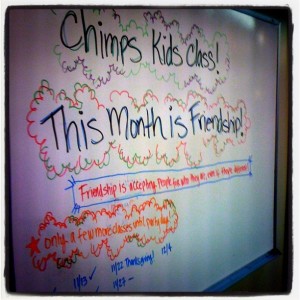 Chimps Kids Class!
This Month is Friendship!
Friendship is accepting people for who they are, even if they're different!
only a few more classes until party day!
11/13 ✓ 11/22 Thanksgiving! 12/4
11/27 —